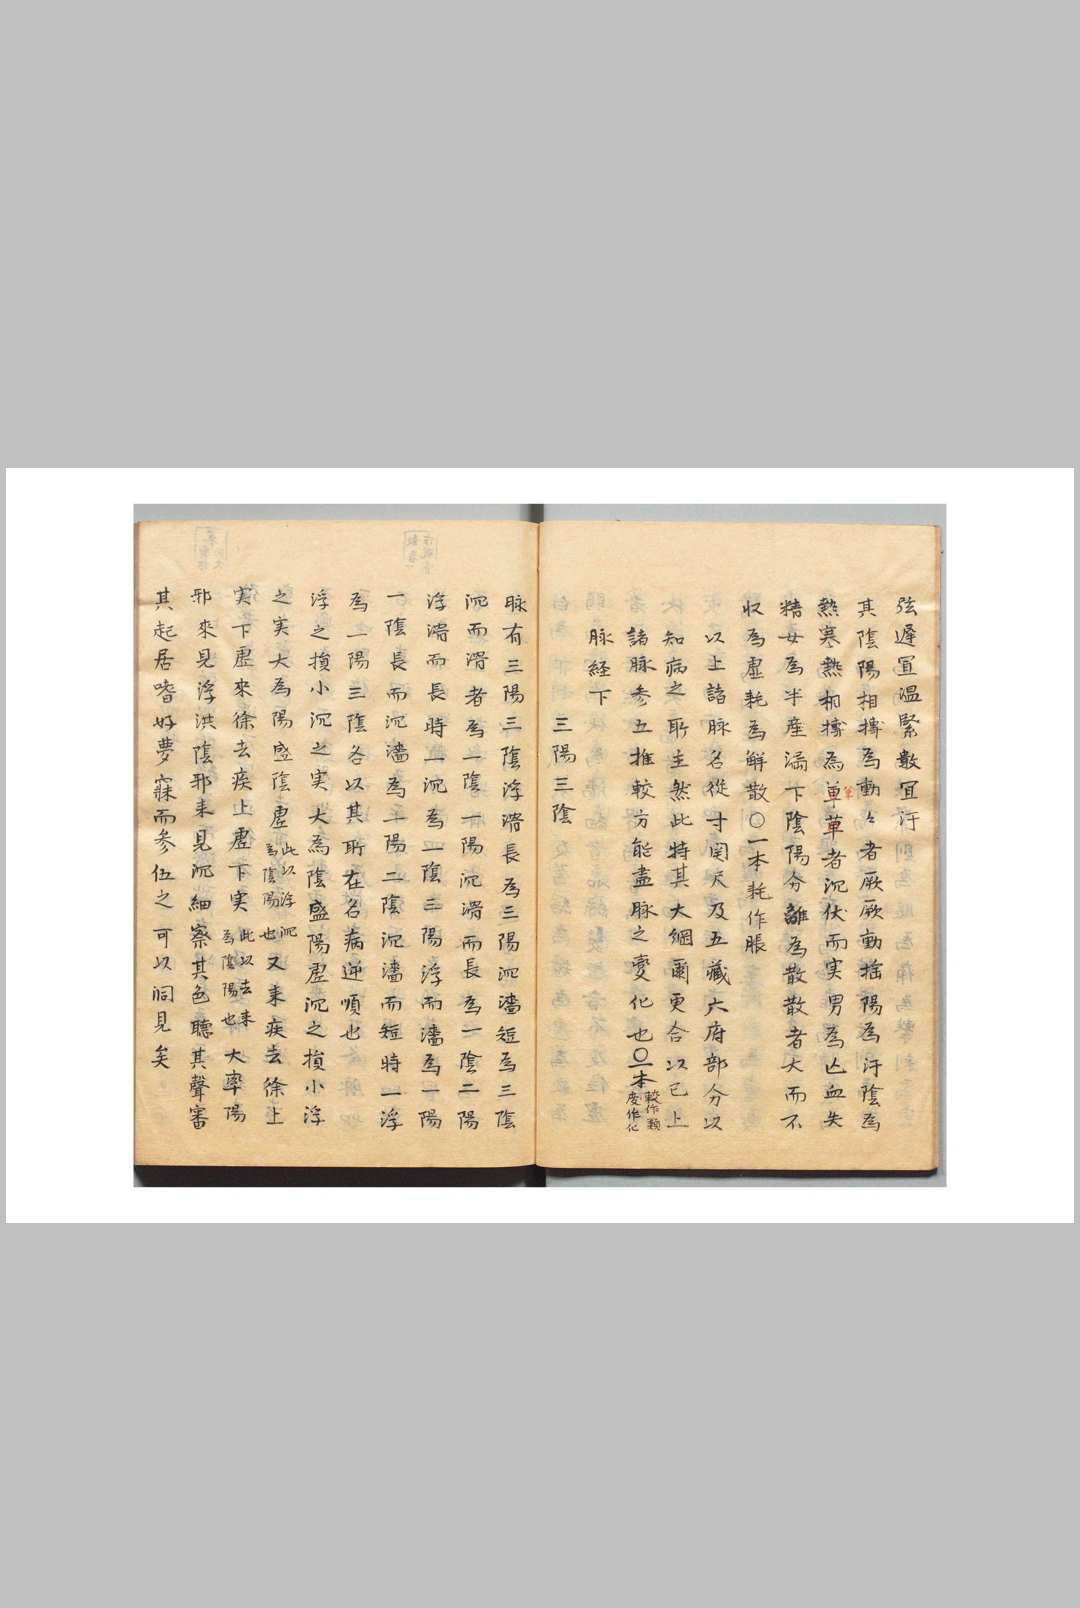 弦遲冝温緊數冝汗
其陰陽相摶為動々者厥厥動摇陽為汗陰為
熱寒熱相摶為革革者沉伏而実男為亡血失
精女為半産漏下陰陽分離為散散者大而不
収為虚耗為解散○一本耗作脹
以上諸脉名從寸関尺及五藏六府部分以
知病之所主然此特其大綱爾更合以已上
諸脉参五推較方能盡脉之變化也○一本較作類
度作化
脉経下
三陽三陰
脉有三陽三陰浮滑長為三陽沉濇短為三陰
沉而滑者為一陰一陽沉滑而長為一陰二陽
浮滑而長時一沉為一陰三陽浮而濇為一陽
一陰長而沉濇為一陽二陰沉濇而短時一浮
為一陽三陰各以其所在名病逆順也
浮之損小沉之実大為陰盛陽虚沉之損小浮
之実大為陽盛陰虚此以浮沉
為陰陽也又来疾去徐上
実下虚來徐去疾上虚下実此以去来
為陰陽也大率陽
邪來見浮洪陰邪来見沉細察其色聽其聲審
其起居嗜好夢寐而参伍之可以洞見矣